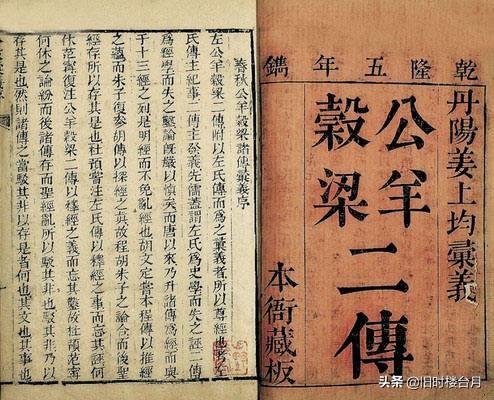 乾隆五年鐫
丹陽姜上均彙義
公羊
穀梁
二傳
本衙藏板
春秋公羊穀梁諸傳彙義序
左氏公羊穀梁二傳附以諸傳而為之彙義者所以尊經也
氏傳主紀事二傳主發義先儒蓋謂左氏為史學而失之誣二傳
為經學而失之鑿論既嚴以慎矣而唐以來乃升諸傳為經
于十三經之列是明經而不免亂經也胡文定嘗本程傳以推經
之蘊而朱子復參胡傳以探經之真故程胡朱子之論合而後聖
經存所以存其是也杜預嘗注左氏傳以釋經之事而忘其誣何
休范寗復注公羊穀梁二傳以釋經之義而忘其鑿故杜預范寗
何休之論紛而後諸傳存而聖經亂所以駁其非也駁其非以
存其是也然則諸傳之當駁其非以存是者何也其文也其事也
头条 @旧时楼台月